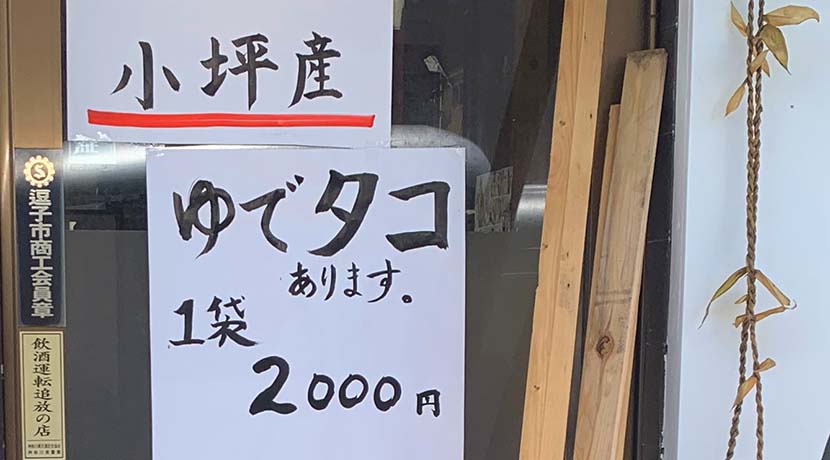 小坪産
ゆでタコ
あります。
1袋
2000円
S
逗子市商工会員章
飲酒運転追放の店